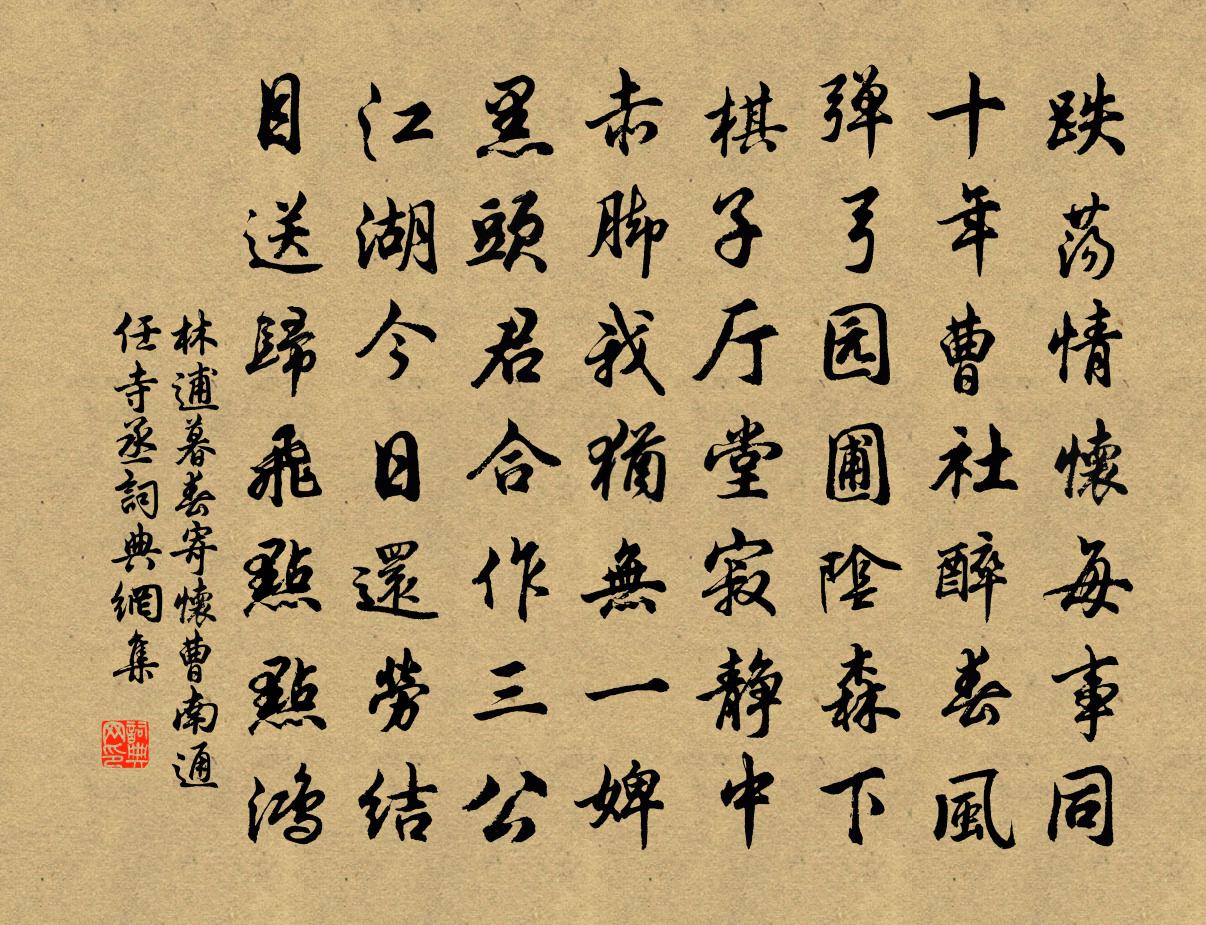 跌荡情懷每事同
十年曹社醉春風
弹弓园圃陰森下
棋子厅堂寂静中
赤脚我猶無一婢
黑頭君合作三公
江湖今日還勞結
目送歸飛點點鸿
林逋暮春寄懷曹南通
任寺丞詞典網集
詞典网印